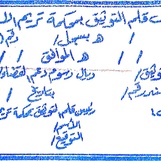 قلم التوثيق بمحكمة تريم الا
/ / هـ بسجل / رقم
/ / هـ الموافق / /
ريال رسوم دعم القضاء
بتاريخ / /
رئيس قلم التوثيق بمحكمة تريم
الاسم
التوقيع